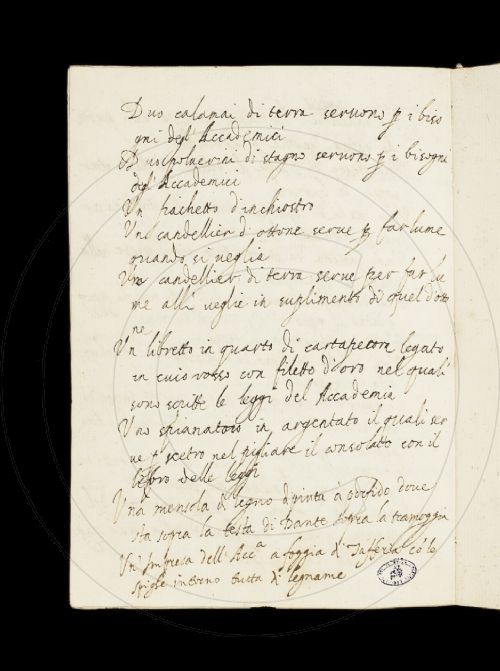 Duo calamai di terra seruono p i biso
gni degl Accademici
Duo spoluerini di stagno seruono p i bisogni
degl' Accademici
Un fiachetto d'inchiostro
Un candellier d ottone serue p far lume
quando si ueglia
Un candellier di terra serue per far lu
me alli ueglie in suplimento di quel d'otto
ne
Un libretto in quarto di cartapecora legato
in cuio rosso con filetto d'oro nel quali
sono scritte le leggi del Accademia
Uno spianatoio in argentato il quali ser
ue p scetro nel pigliare il consolato con il
libro delle leggi
Una mensola di legno dipinta a porfido doue
sta sopra la testa di Dante sopra la tramoggia
Un Impresa dell' Acc.a a foggia di Tafferia cō le
spighe intorno tutta di legname